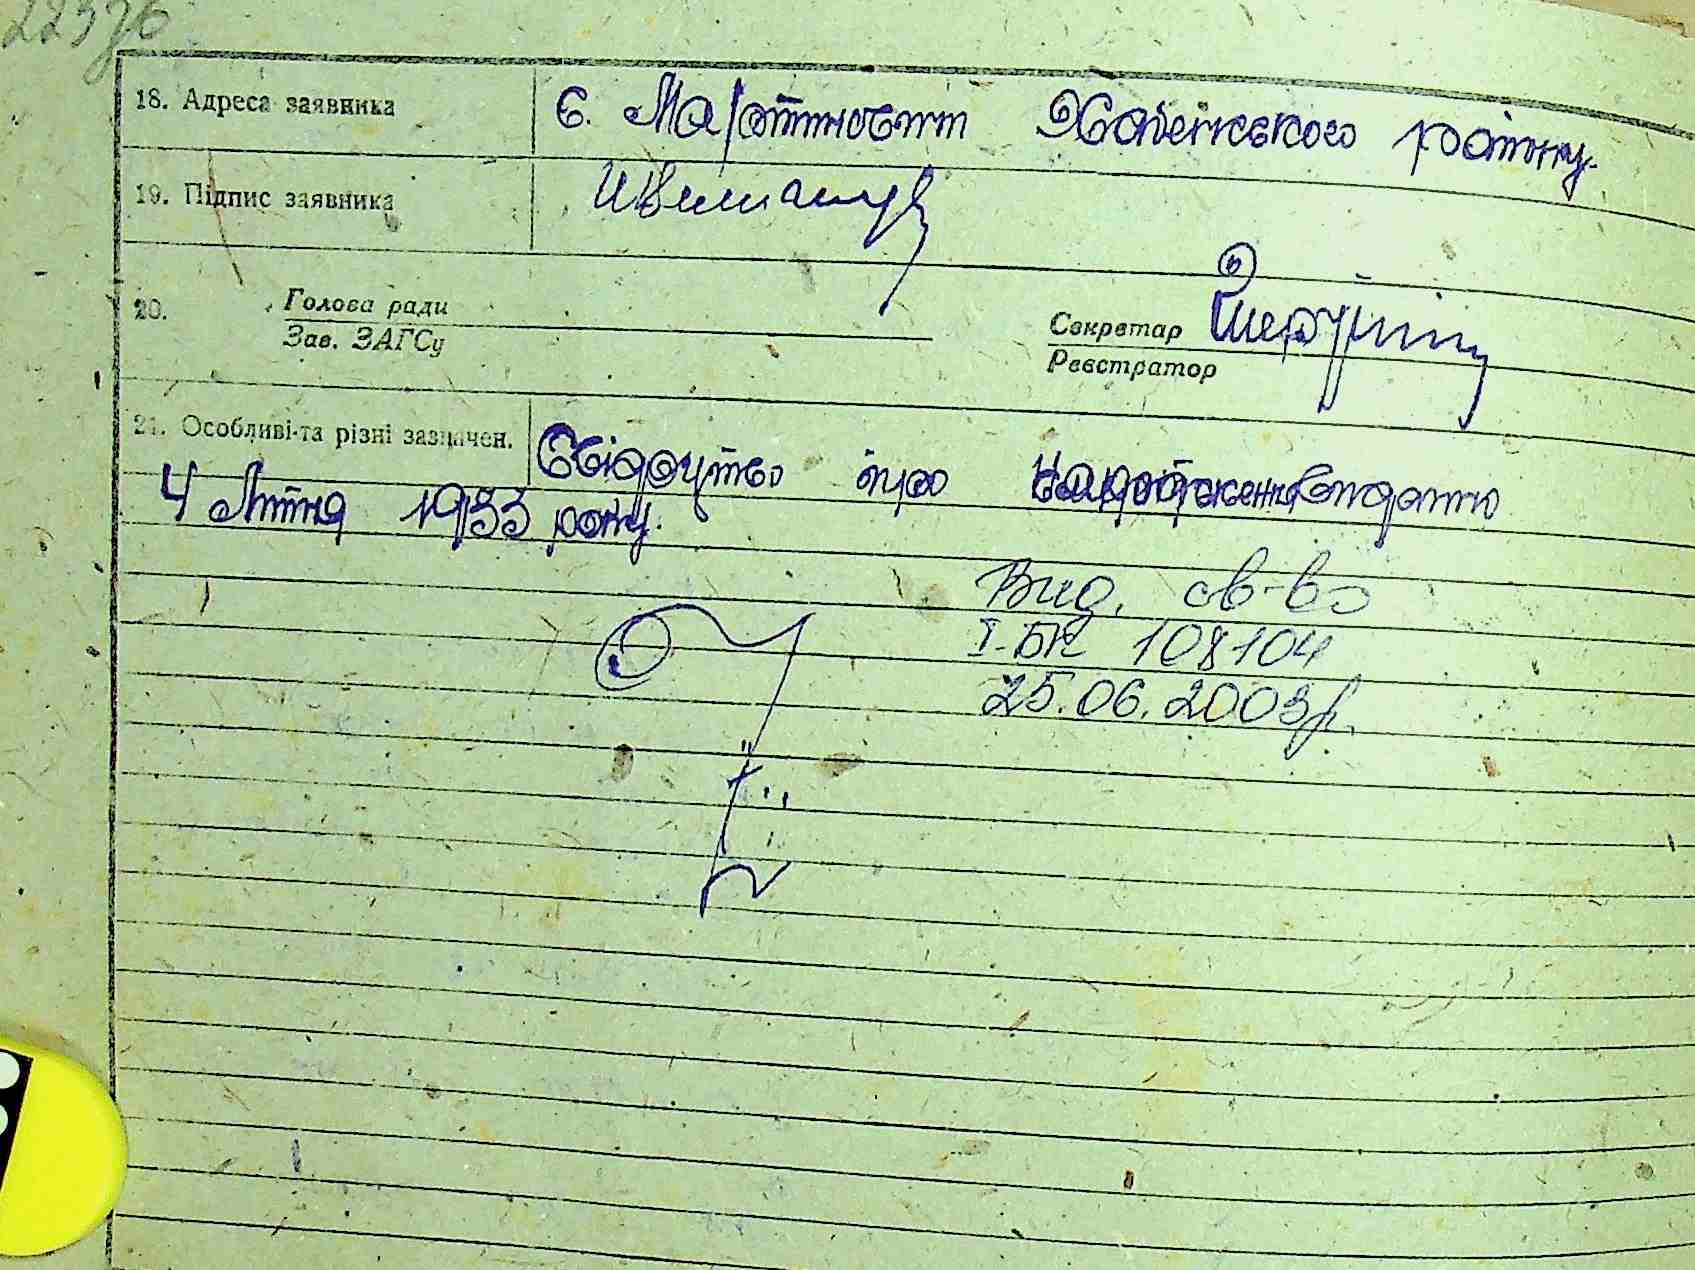 22376
18. Адреса заявника с. Мартиновичі Хабенського району.
19. Підпис заявника
20. Голова ради
Зав. ЗАГСу
Секретар
Реєстратор
21. Особливі та різні зазначен. Свідоцтво про народження видано
4 Липня 1933 року.
Вид. св-во
I-БК 108104
25.06.2003р.